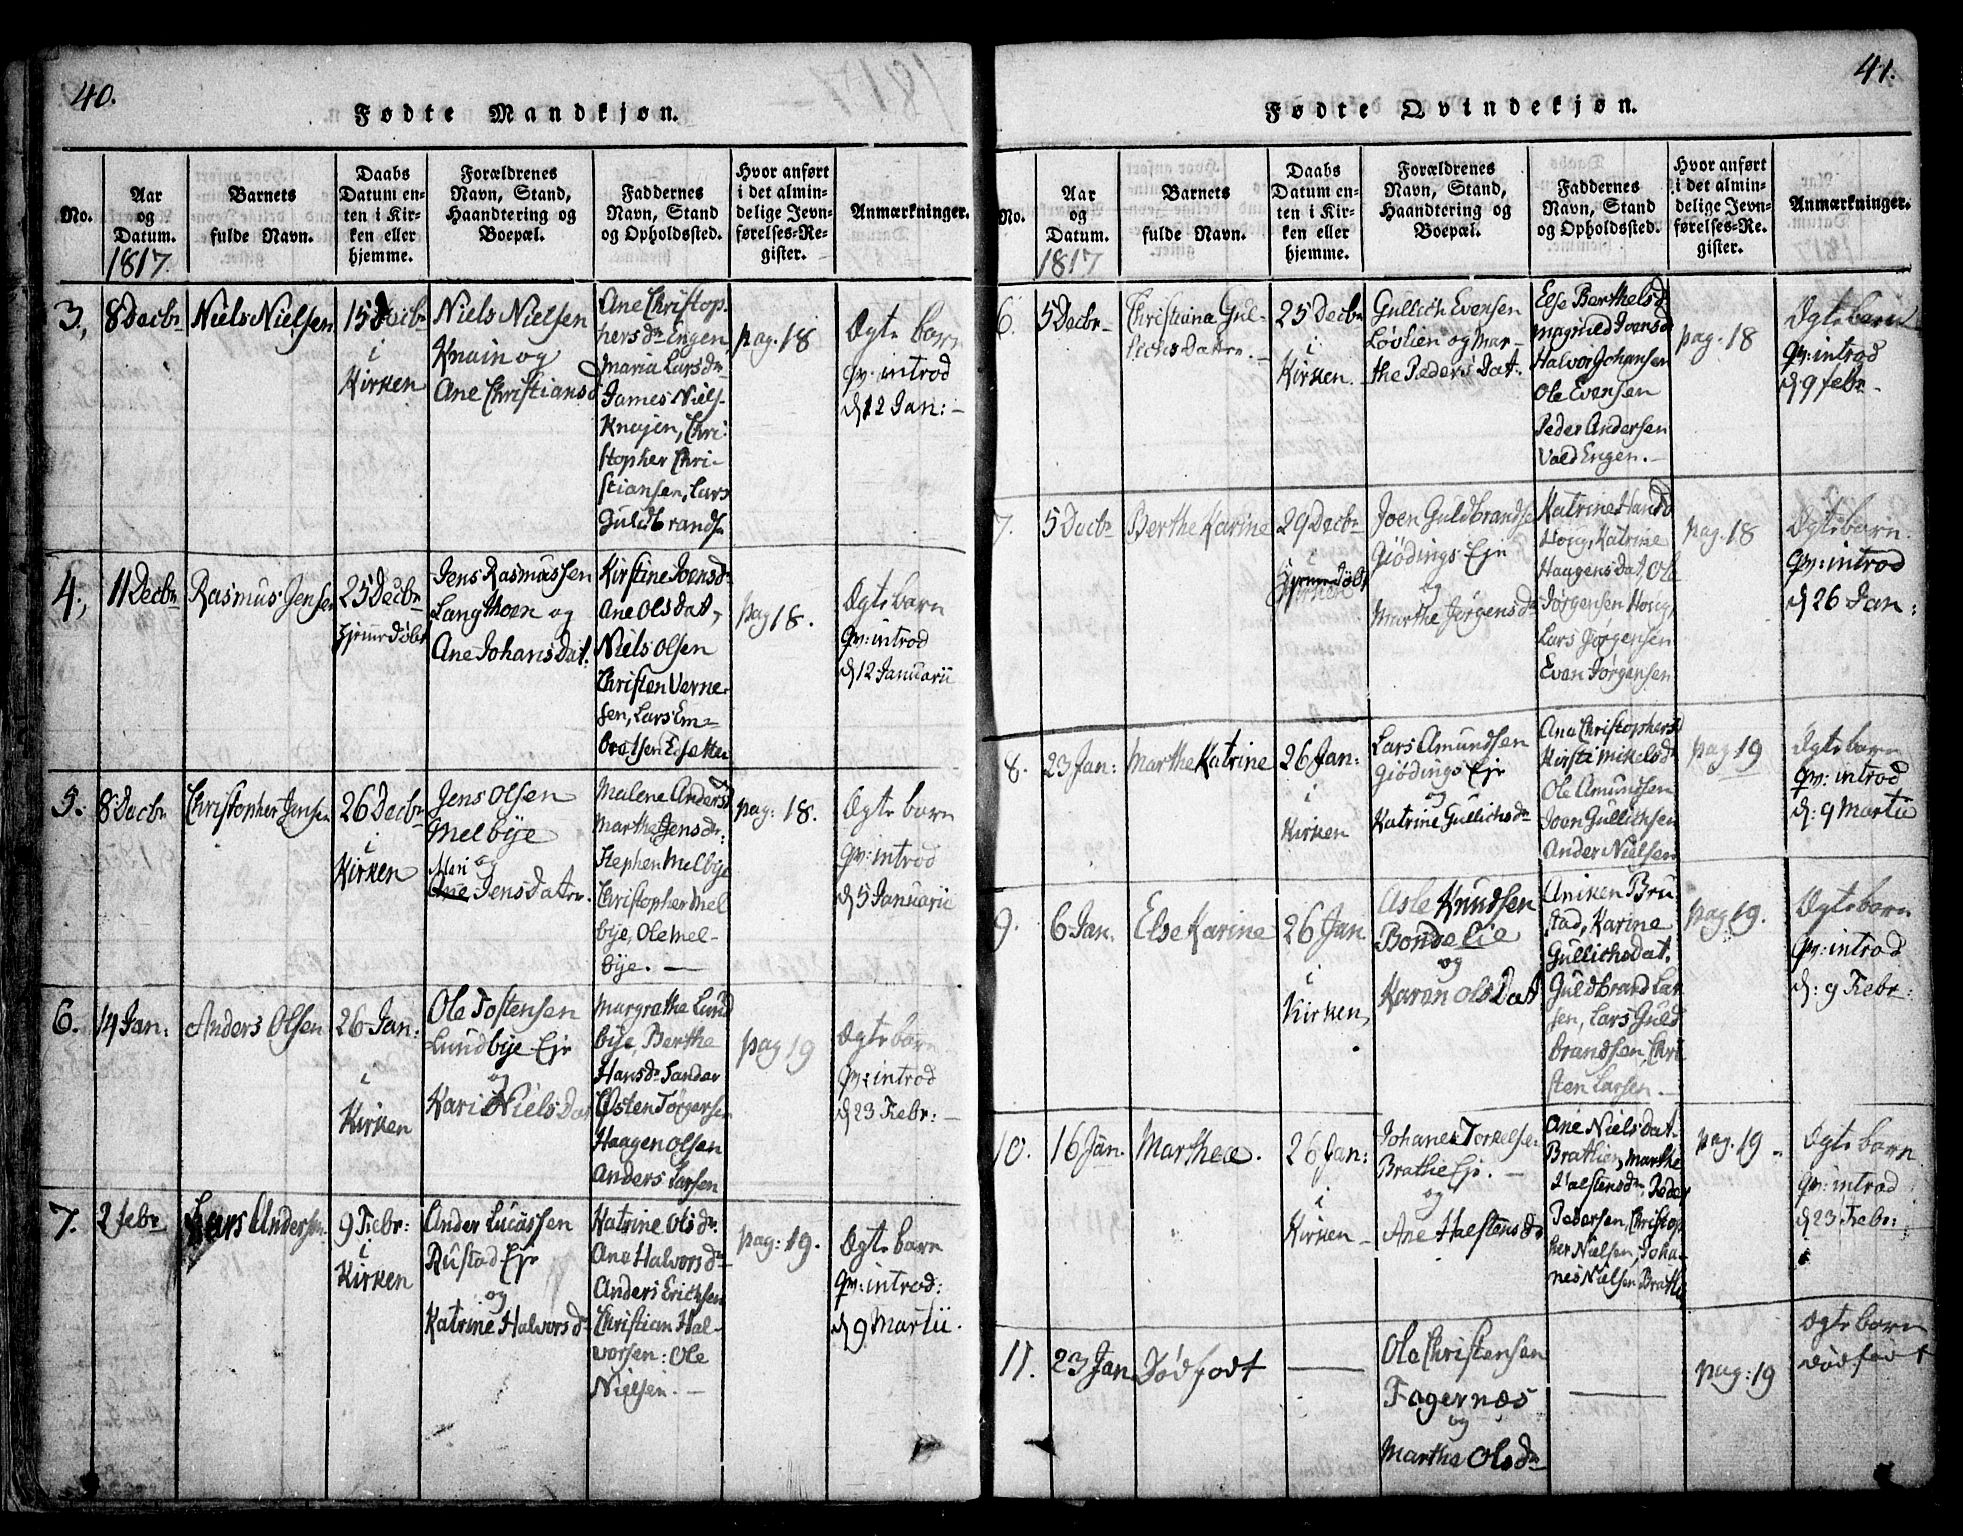 40.
Fødte Mandkjøn.
No.
Aar
og
Datum.
1817
Barnets
fulde Navn.
Daabs
Datum en-
ten i Kir-
ken eller
hjemme.
Forældrenes
Navn, Stand,
Haandtering og
Boepæl.
Faddernes
Navn, Stand
og Opholdssted.
Hvor anført
i det almin-
delige Jevn-
førelses-Re-
gister.
Anmærkninger.
3,
8 Decbr
Niels Nielsen
15 Decbr
i
Kirken
Niels Nielsen
Knain og
Ane Christiansd
Ane Christop-
hersdr Engen
Maria Larsdr
James Niels-
Knajen, Chri-
stopher Chri-
stiansen, Lars
Guldbrandse
pag. 18
Ægte barn
qv: introd
d 12 Jan:
4,
11 Decbr
Rasmus Jensen
25 Decbr
hjemmedøbt
Jens Rasmussen
Langthoen og
Ane Johansdat:
Kirstine Joensdr
Ane Olsdat,
Niels Olsen
Christen Verne-
sen, Lars Em-
bretsen Eesetter
pag 18.
Ægte barn
qv: introd
d 12 Januarii
5.
8 Decbr
Christopher Jensen
26 Decbr
i
Kirken
Jens Olsen
Melbye
og
Mari
Ane Jensdatr.
Malene Andersd
Marthe Jensdr:
Stephen Melbye
Christopher Mel
bye, Ole Mel-
bye. —
pag: 18.
Ægte barn
qv: introd
d 5 Januarii
6.
14 Jan:
Anders Olsen
26 Jan:
i
Kirken
Ole Tostensen
Lundbye Eje
og
Kari Nielsdat
Margrathe Lund
bye, Berthe
Hansdr Sander
Østen Jørgensen
Haagen Olsen
Anders Larsen
pag 19
Ægte barn
qv: introd
d 23 Febr: —
7.
2 febr
Lars Andersen
9 Febr:
i
Kirken
Ander Lucassen
Rustad Eje
og
Katrine Halvorsdr
Katrine Olsdr
Ane Halvorsdr
Anders Erichsen
Christian Hal-
vorsen: Ole
Nielsen. —
pag: 19.
Ægte barn
qv: introd:
d 9 Martii.
41.
Fødte Qvindekjøn.
No.
Aar
og
Datum.
1817
Barnets
fulde Navn.
Daabs
Datum en-
ten i Kir-
ken eller
hjemme.
Forældrenes
Navn, Stand,
Haandtering og
Boepæl.
Faddernes
Navn, Stand
og Opholdssted.
Hvor anført
i det almin-
delige Jevn-
førelses-Re-
gister.
Anmærkninger.
6.
5 Decbr
Christiana Gul-
lichsdatr. —
25 Decbr
i
Kirken.
Gullich Evensen
Løvlien og Mar-
the Pedersdat.
Else Berthelsd
Magnild Joensd
Halvor Johansen
Ole Evensen
Peder Andersen
Vold Engen. —
pag. 18
Ægte barn
qv: introd
d 9 febr
7.
5 Decbr
Berthe Karine
29 Decbr
i
Kirken
Joen Guldbrandse
Giødings Eje
og
Marthe Jørgensdr
Katrine Hansd
Houg, Katrine
Haagensdat, Ole
Jørgensen Houg,
Lars Jørgensen
Even Jørgensen
pag. 18
Ægte barn.
qv: introd
d 26 Jan:
8.
23 Jan:
Marthe Katrine
26 Jan:
i
Kirken
Lars Amundsen
Giødings Eje
og
Katrine Gullichsdr
Ane Christophersd
Kirsti Mikelsdr
Ole Amundsen
Joen Gullichsen
Ander Nielsen
pag 19
Ægte barn
qv: introd
d: 9 Martii
9.
6 Jan.
Else Karine
26 Jan
i
Kirken,
Asle Knudsen
Bondelie
og
Karen Olsdat
Aniken Bru
stad, Karine
Gullichsdat.
Guldbrand Lar
sen, Lars Guld
brandsen, Chri
sten Larsen. —
pag 19.
Ægte barn
qv: introd
d: 9 Febr:
10.
16 Jan.
Marthea.
26 Jan:
i
Kirken —
Johanes Torkelse-
Bratlie Eje. —
og
Ane Halstensd
Ane Nielsdat.
Bratlien, Marthe
Halstensdr Peder
Pedersen, Christop
her Nielsen, Joha-
nes Nielsen Bratlie
pag. 19
Ægte barn
qv: introd
d 23 Febr:
11.
23 Jan
Dødfødt
Ole Christensen
Fagernæs
og
Marthe Olsdr
pag: 19
Ægte barn
dødfødt